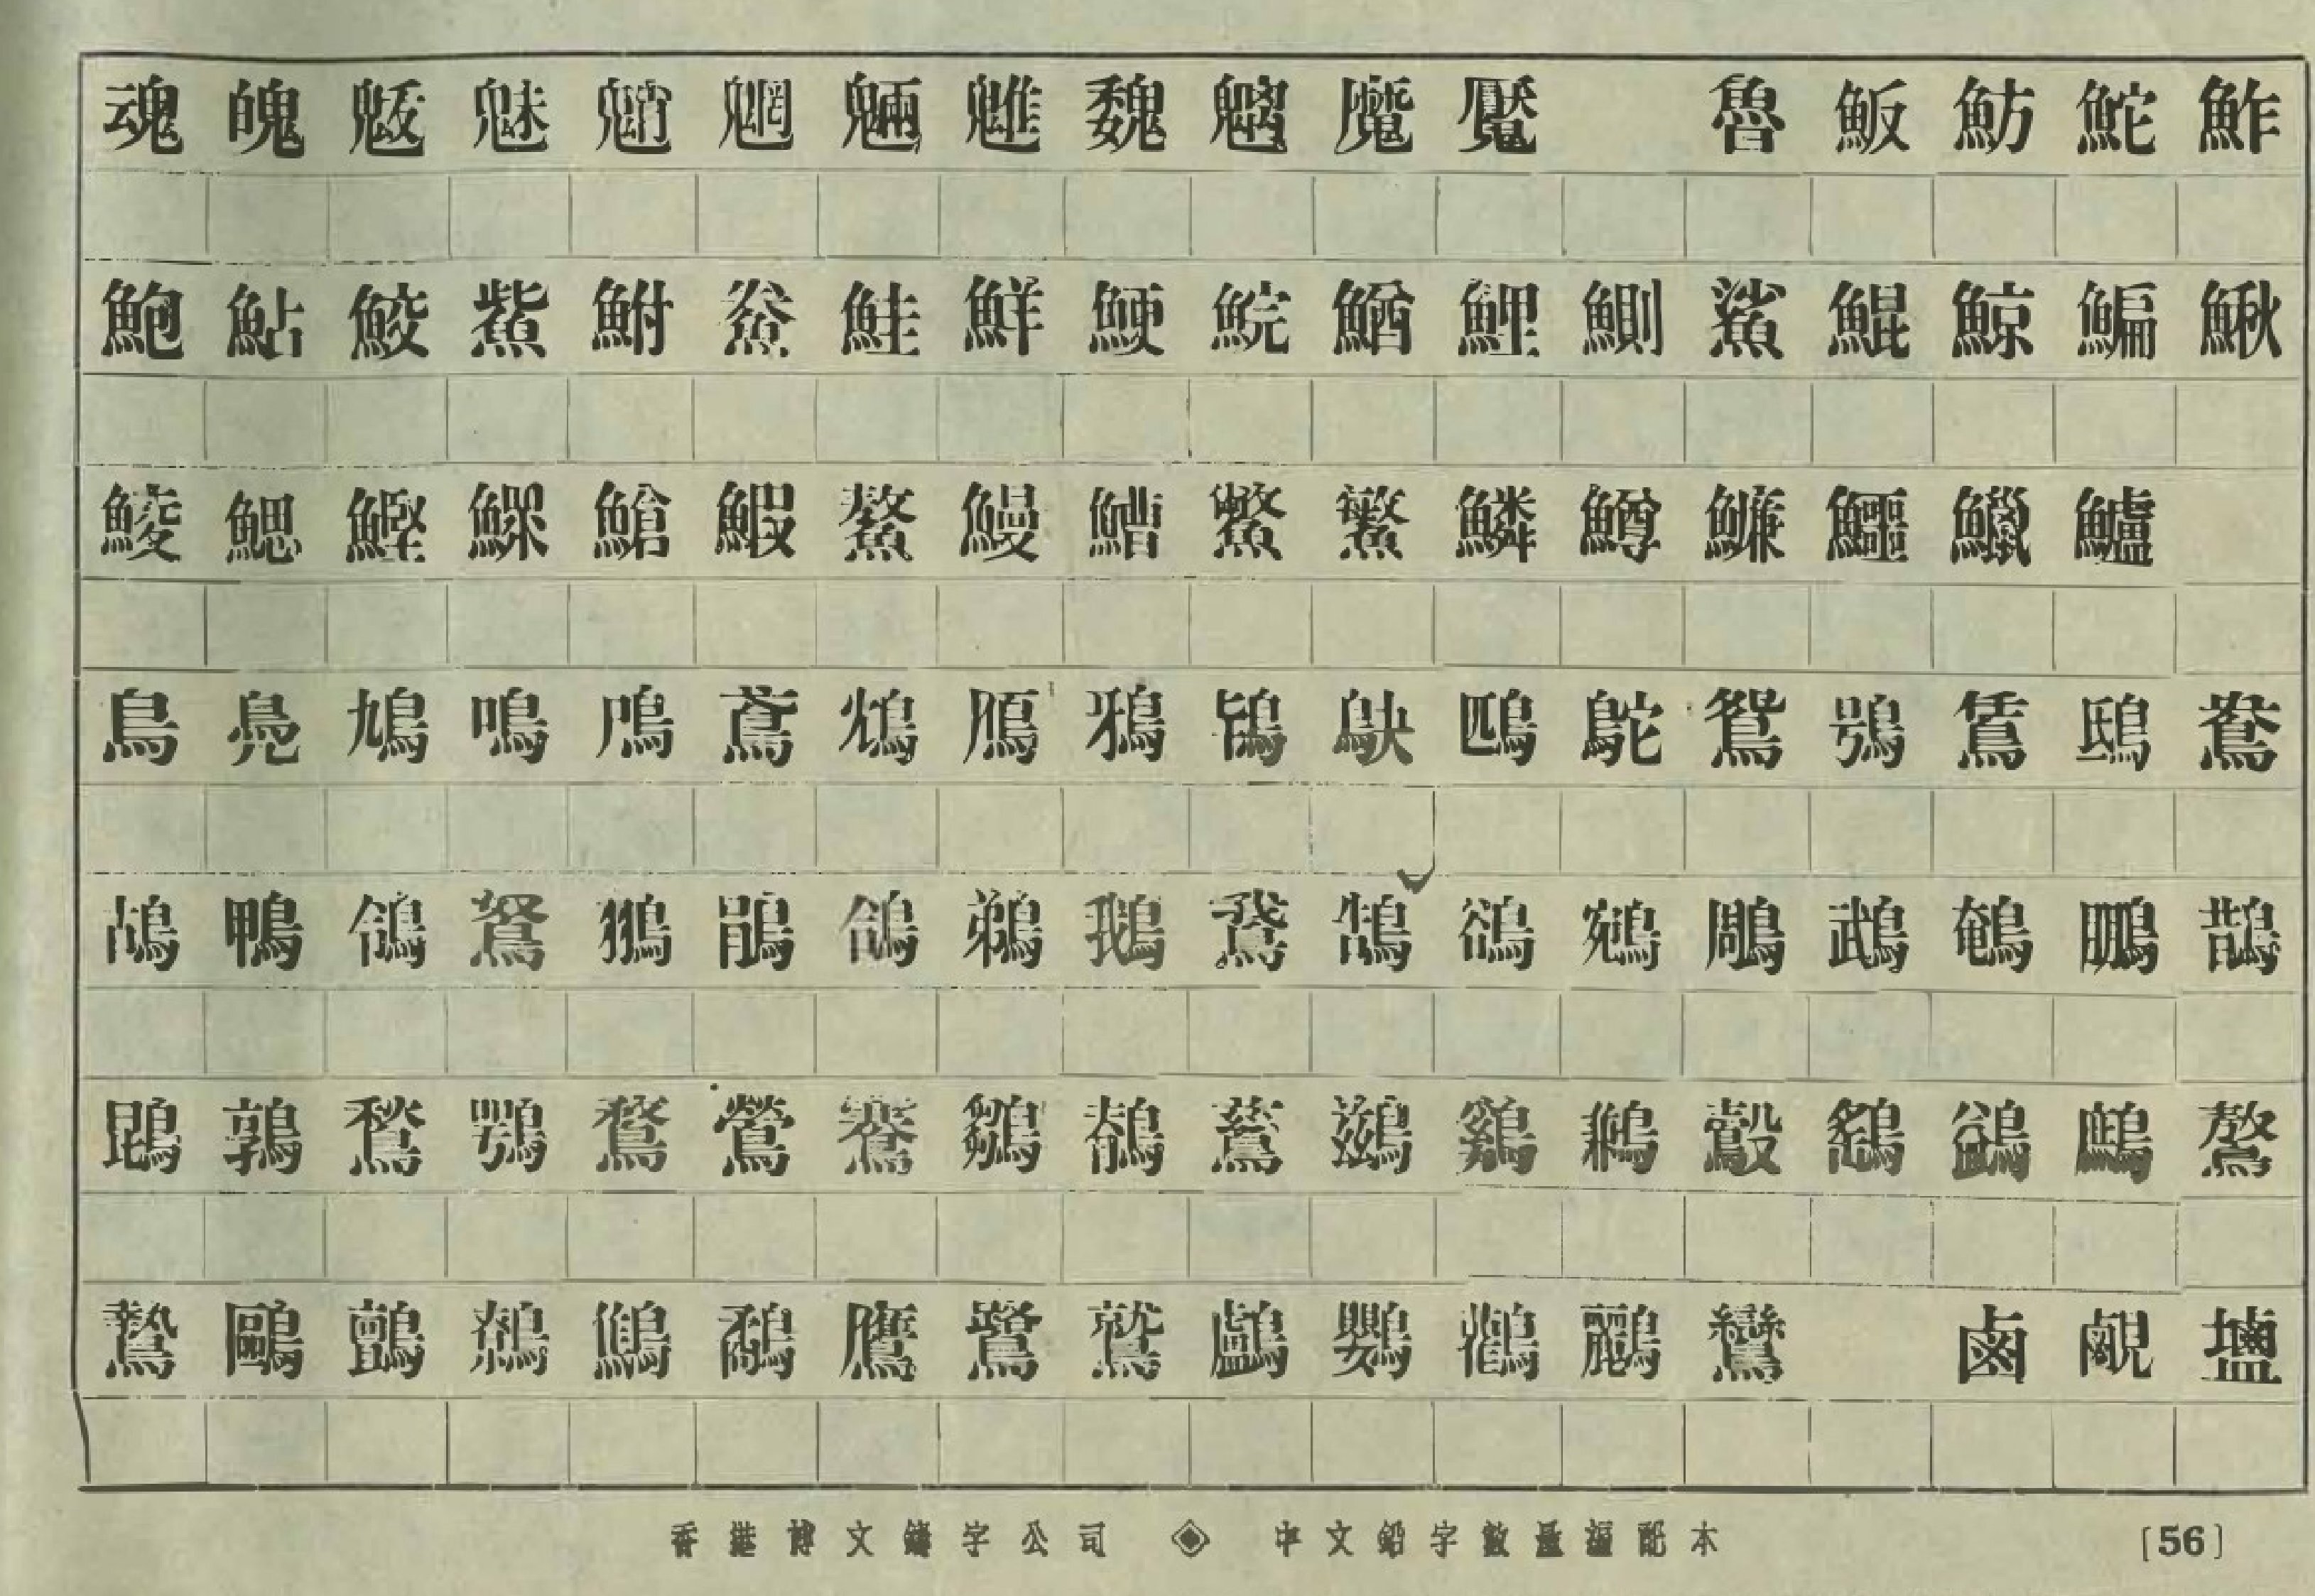 魂魄魃魅魈魍魎魋魏魑魔魘 魯魬魴鮀鮓
鮑鮎鮫鮆鮒鮝鮭鮮鯁鯇鰌鯉鰂鯊鯤鯨鯿鰍
鯪鰓鰹鰥鰆鰕鰲鰻鰽鱉鱉鱗鱒鰜鱷鱲鱸
鳥鳧鳩鳴鳲鳶鴆鴈鴉鴇鴃鴄鴕鴛鴞鴆鴟鴦
鴣鴨鴒鴑鴝鵑鴿鵜鵝鵞鵠鵒鵷鵰鵡鵪鵬鵲
鵾鶉鶖鶚鶩鶯鶱鶵鶄鶿鷀鷄鶼鷇鷂鷁鷓鷔
鷙鷗鷒鷞鷦鷸鷹鷺鷲鸕鸚鸛鸝鸞 鹵鹹鹽
香港博文鑄字公司 ◈ 中文鉛字數量編配本 [56]